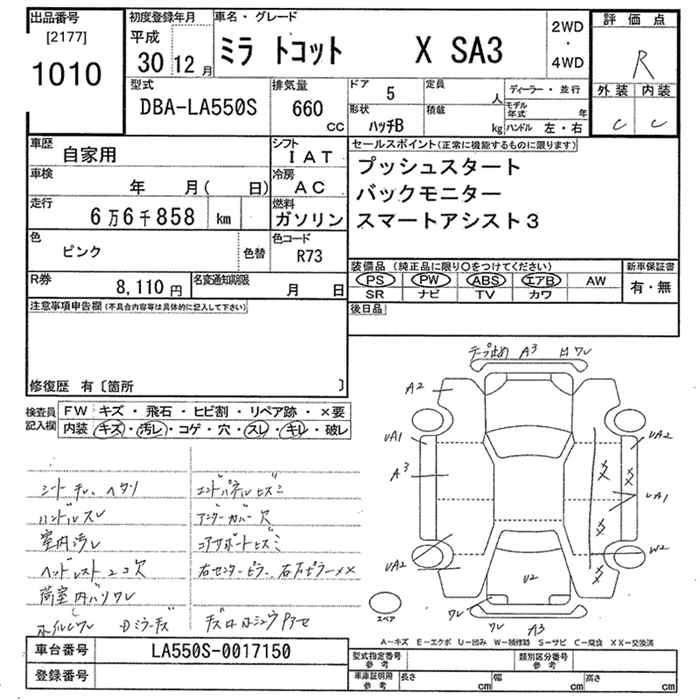 出品番号
[2177]
1010
初度登録年月
平成
30年12月
車名・グレード
ミラ トコット X SA3
2WD
・
4WD
評価点
R
外装 内装
C C
型式
DBA-LA550S
排気量
660
cc
ドア
5
形状
ハッチB
定員
人
積載
kg
ディーラー・並行
モデル年式 年
ハンドル 左・右
車歴
自家用
シフト
IAT
車検
年 月( 日)
冷房
AC
走行
6万6千858 km
燃料
ガソリン
色
ピンク
色替
色コード
R73
R券
8,110円
名変通知期限
月 日
セールスポイント(正常に機能するものに限ります)
プッシュスタート
バックモニター
スマートアシスト3
装備品 (純正品に限り〇をつけてください)
PS PW ABS エアB AW
SR ナビ TV カワ
新車保証書
有・無
後日品
注意事項申告欄(不具合内容等は具体的に記入して下さい)
修復歴 有〔箇所 〕
検査員記入欄
FW キズ・飛石・ヒビ割・リペア跡・×要
内装 キズ・汚レ・コゲ・穴・スレ・キレ・破レ
シート チレ、ヘタリ
ハンドルスレ
室内汚レ
ヘッドレスト2コ欠
荷室内ハリワレ
エンドパネルヒズミ
アンダーカバー欠
コアサポートヒズミ
右センターピラー、右Fピラー××
テープ止め A3 ワレ
A2
UA1
A3
UA2
UA2
UA1
W2
U2
ワレ
ワレ A3
スペア
A－キズ E－エクボ U－凹み W－補修跡 S－サビ C－腐食 XX－交換済
車台番号
LA550S-0017150
登録番号
型式指定番号
参考
類別区分番号
参考
車庫証明用
参考
長さ cm
幅 cm
高さ cm